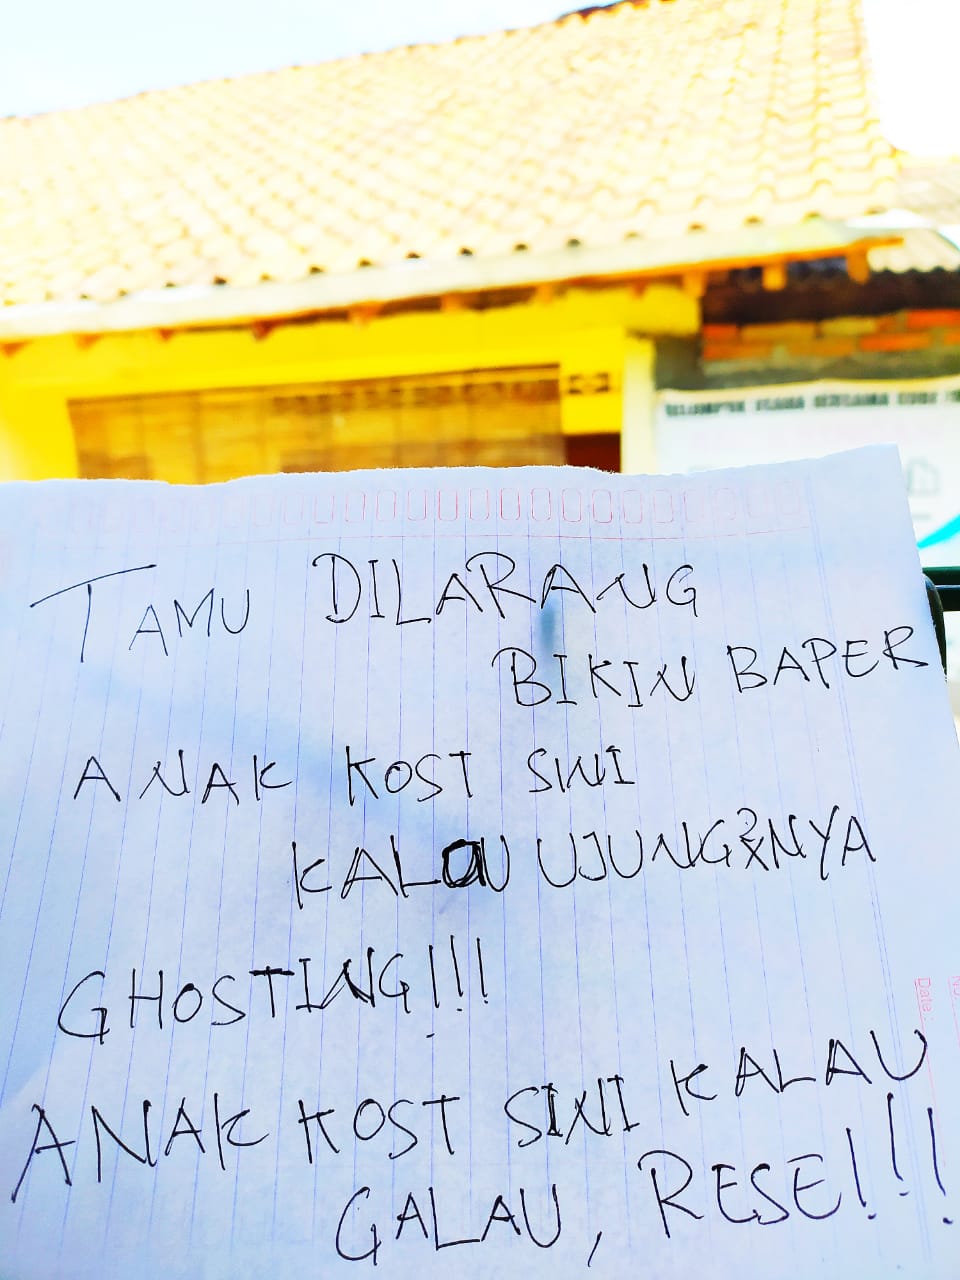 KELOMPOK USAHA BERSAMA KUBE
TAMU DILARANG
BIKIN BAPER
ANAK KOST SINI
KALAU UJUNG2NYA
GHOSTING!!!
ANAK KOST SINI KALAU
GALAU, RESE!!!
Date:
No